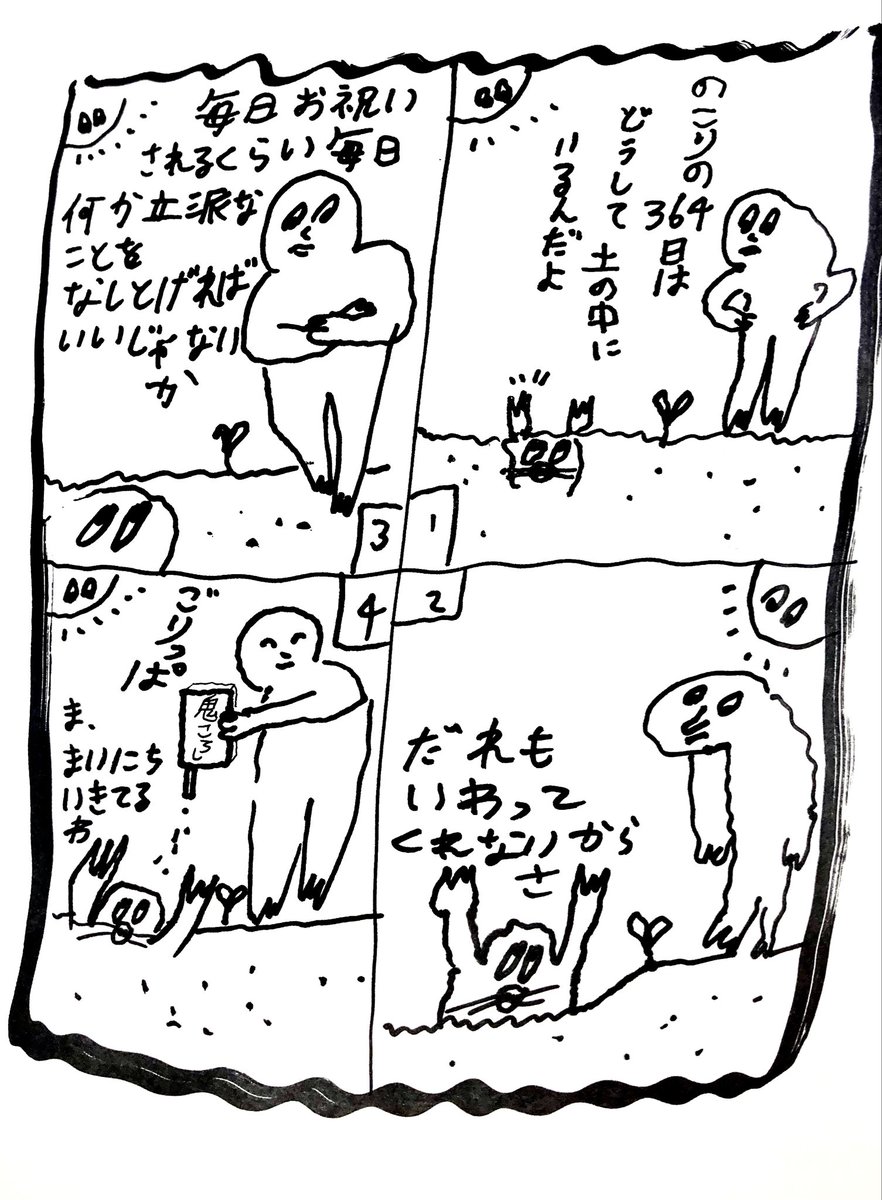 1
のこりの
364日は
どうして
土の中に
いるんだよ
2
だれも
いわって
くれないから
さ
3
毎日お祝い
されるくらい毎日
何か立派な
ことを
なしとげれば
いいじゃない
か
4
ごりっ
ぱ。
鬼ころし
ま、
まいにち
いきてる
わ